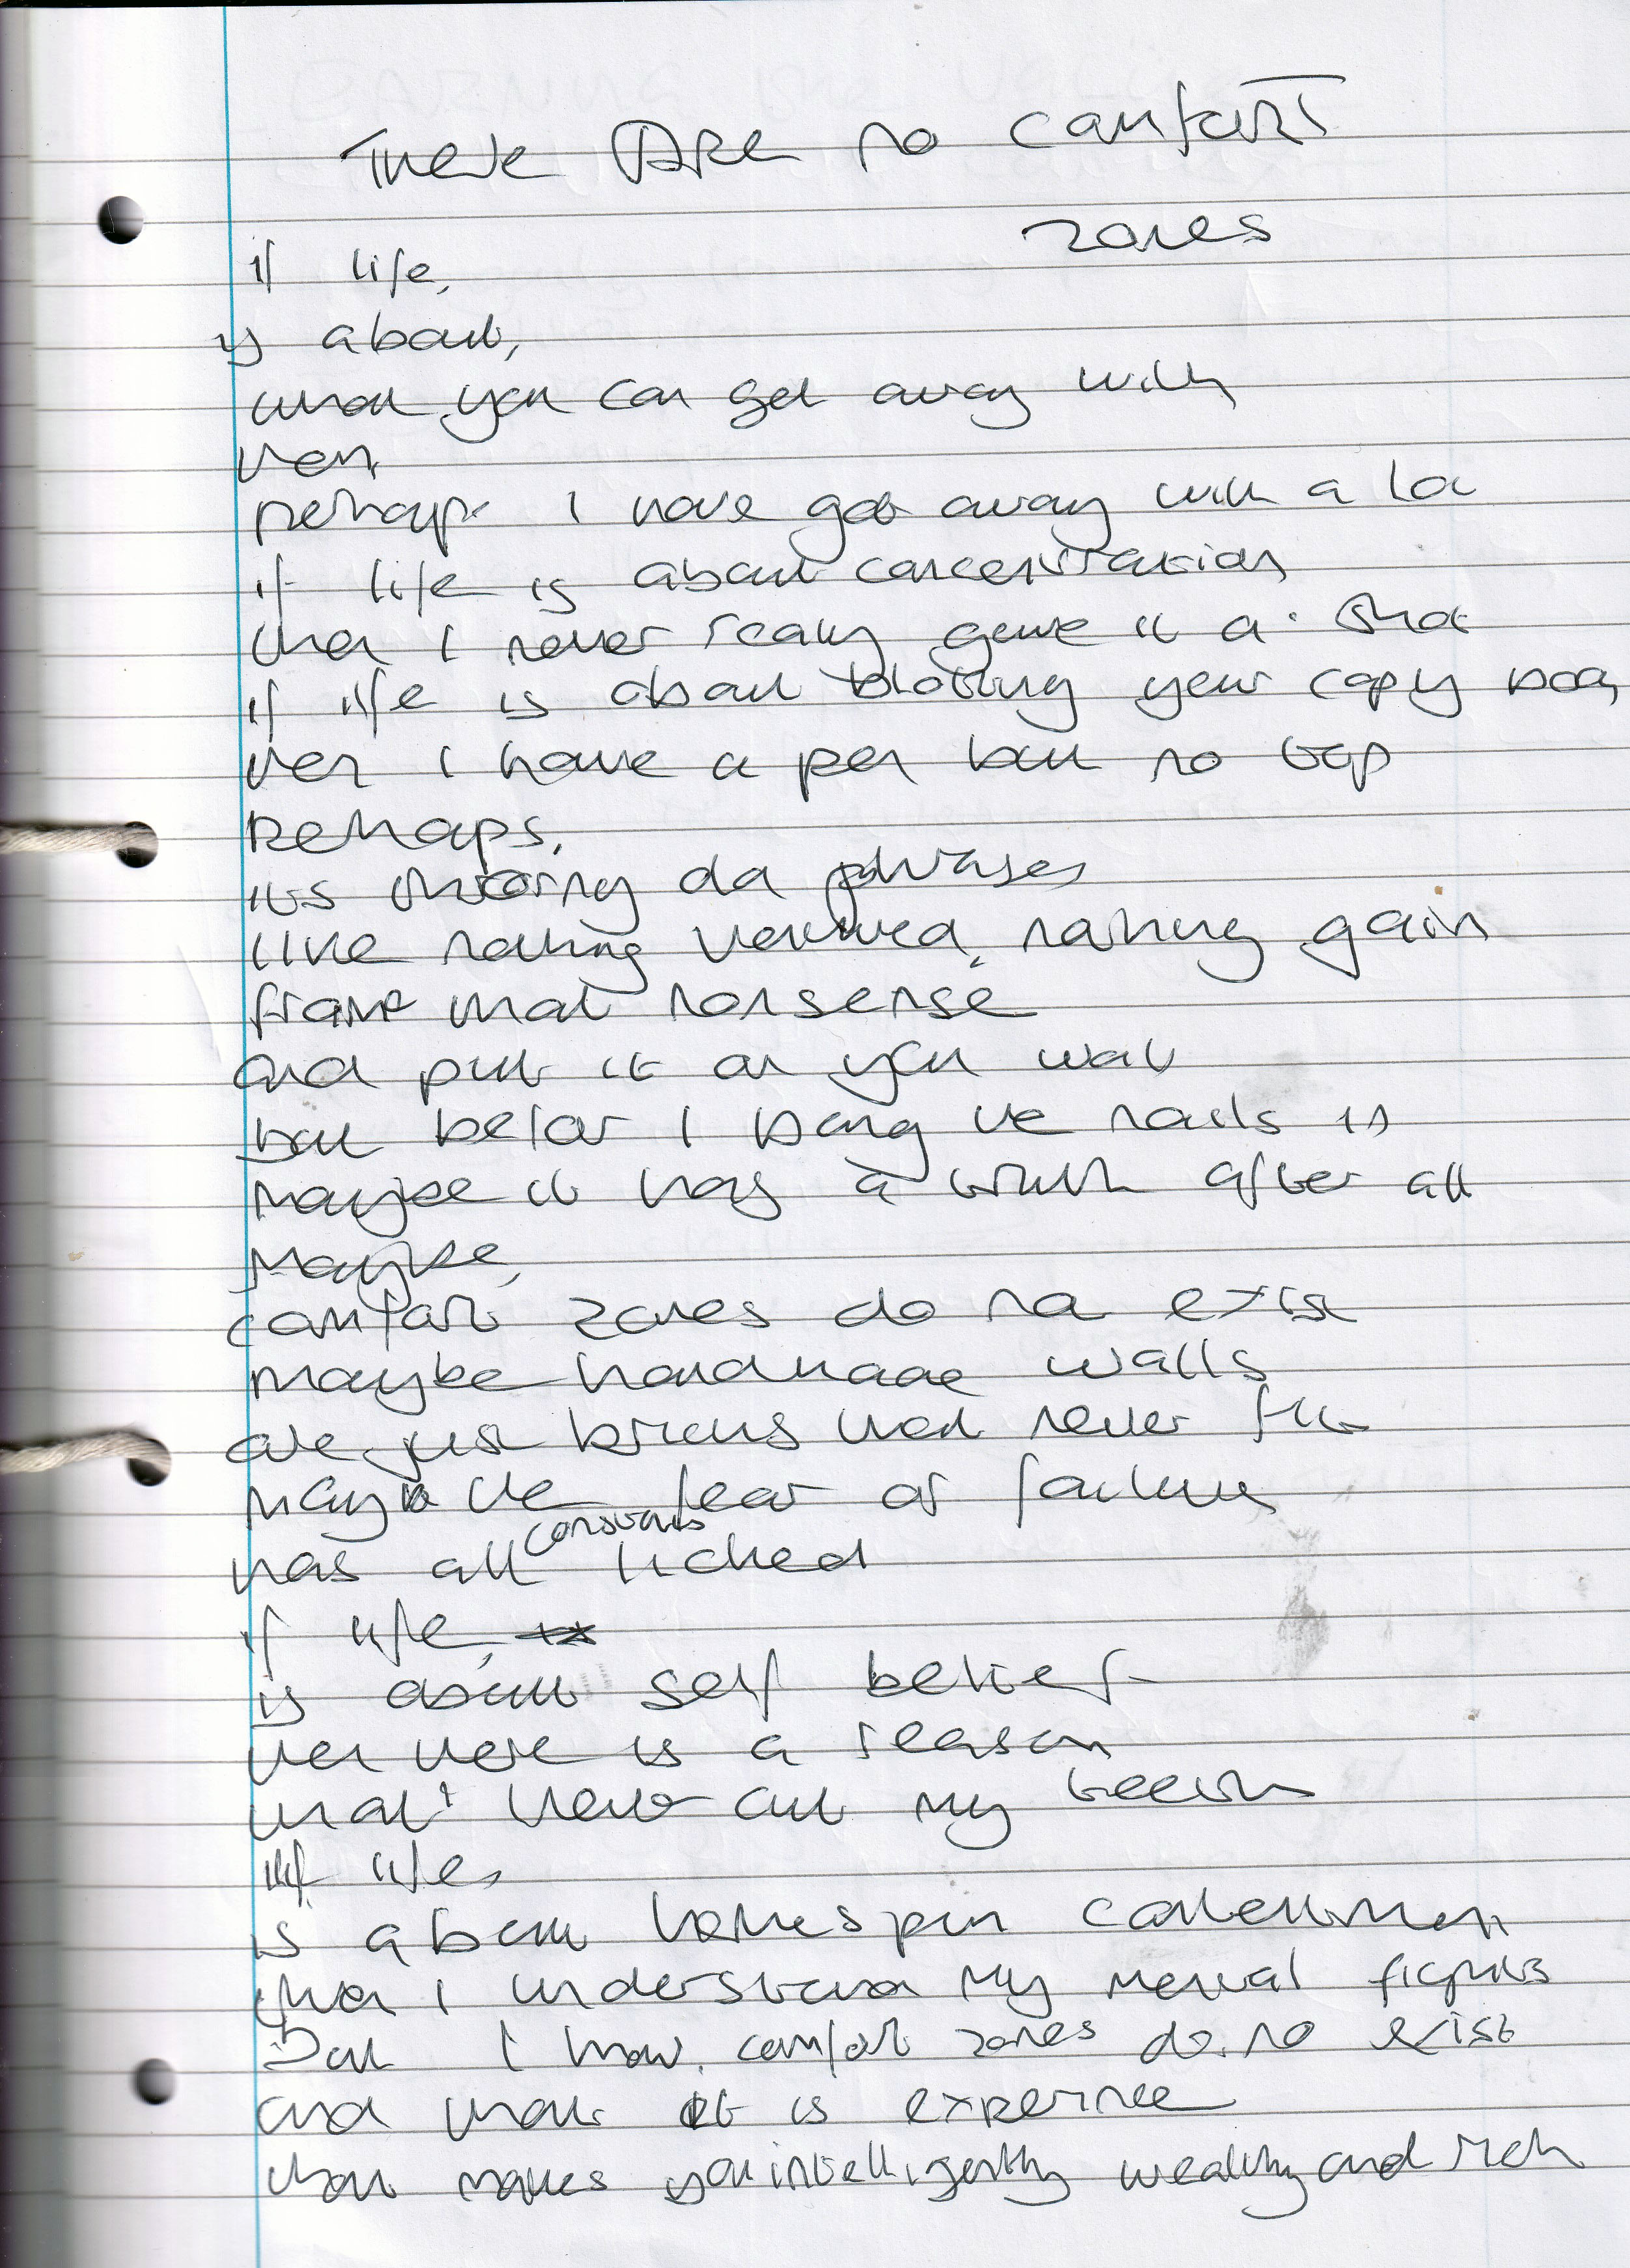 There Are no comfort
zones
if life,
is about,
what you can get away with
then,
perhaps I have got away with a lot
if life is about concentration
then I never really gave it a shot
if life is about blotting your copy book
then I have a pen but no top
Perhaps,
its throwing old phrases
like nothing ventured, nothing gain
frame that nonsense
and put it on you wall
but befor I bang the nails in
maybe it has a truth after all
Maybe,
comfort zones do not exist
maybe handmade walls
are just bricks that never fit
maybe the fear of failure
has all constraints ticked
if life,
is about self belief
then there is a reason
that I have cut my teeth
if life,
is about homespun contentment
then I understand my mental fights
But I know, comfort zones do no exist
and that it is experince
that makes you intelligently wealthy and rich